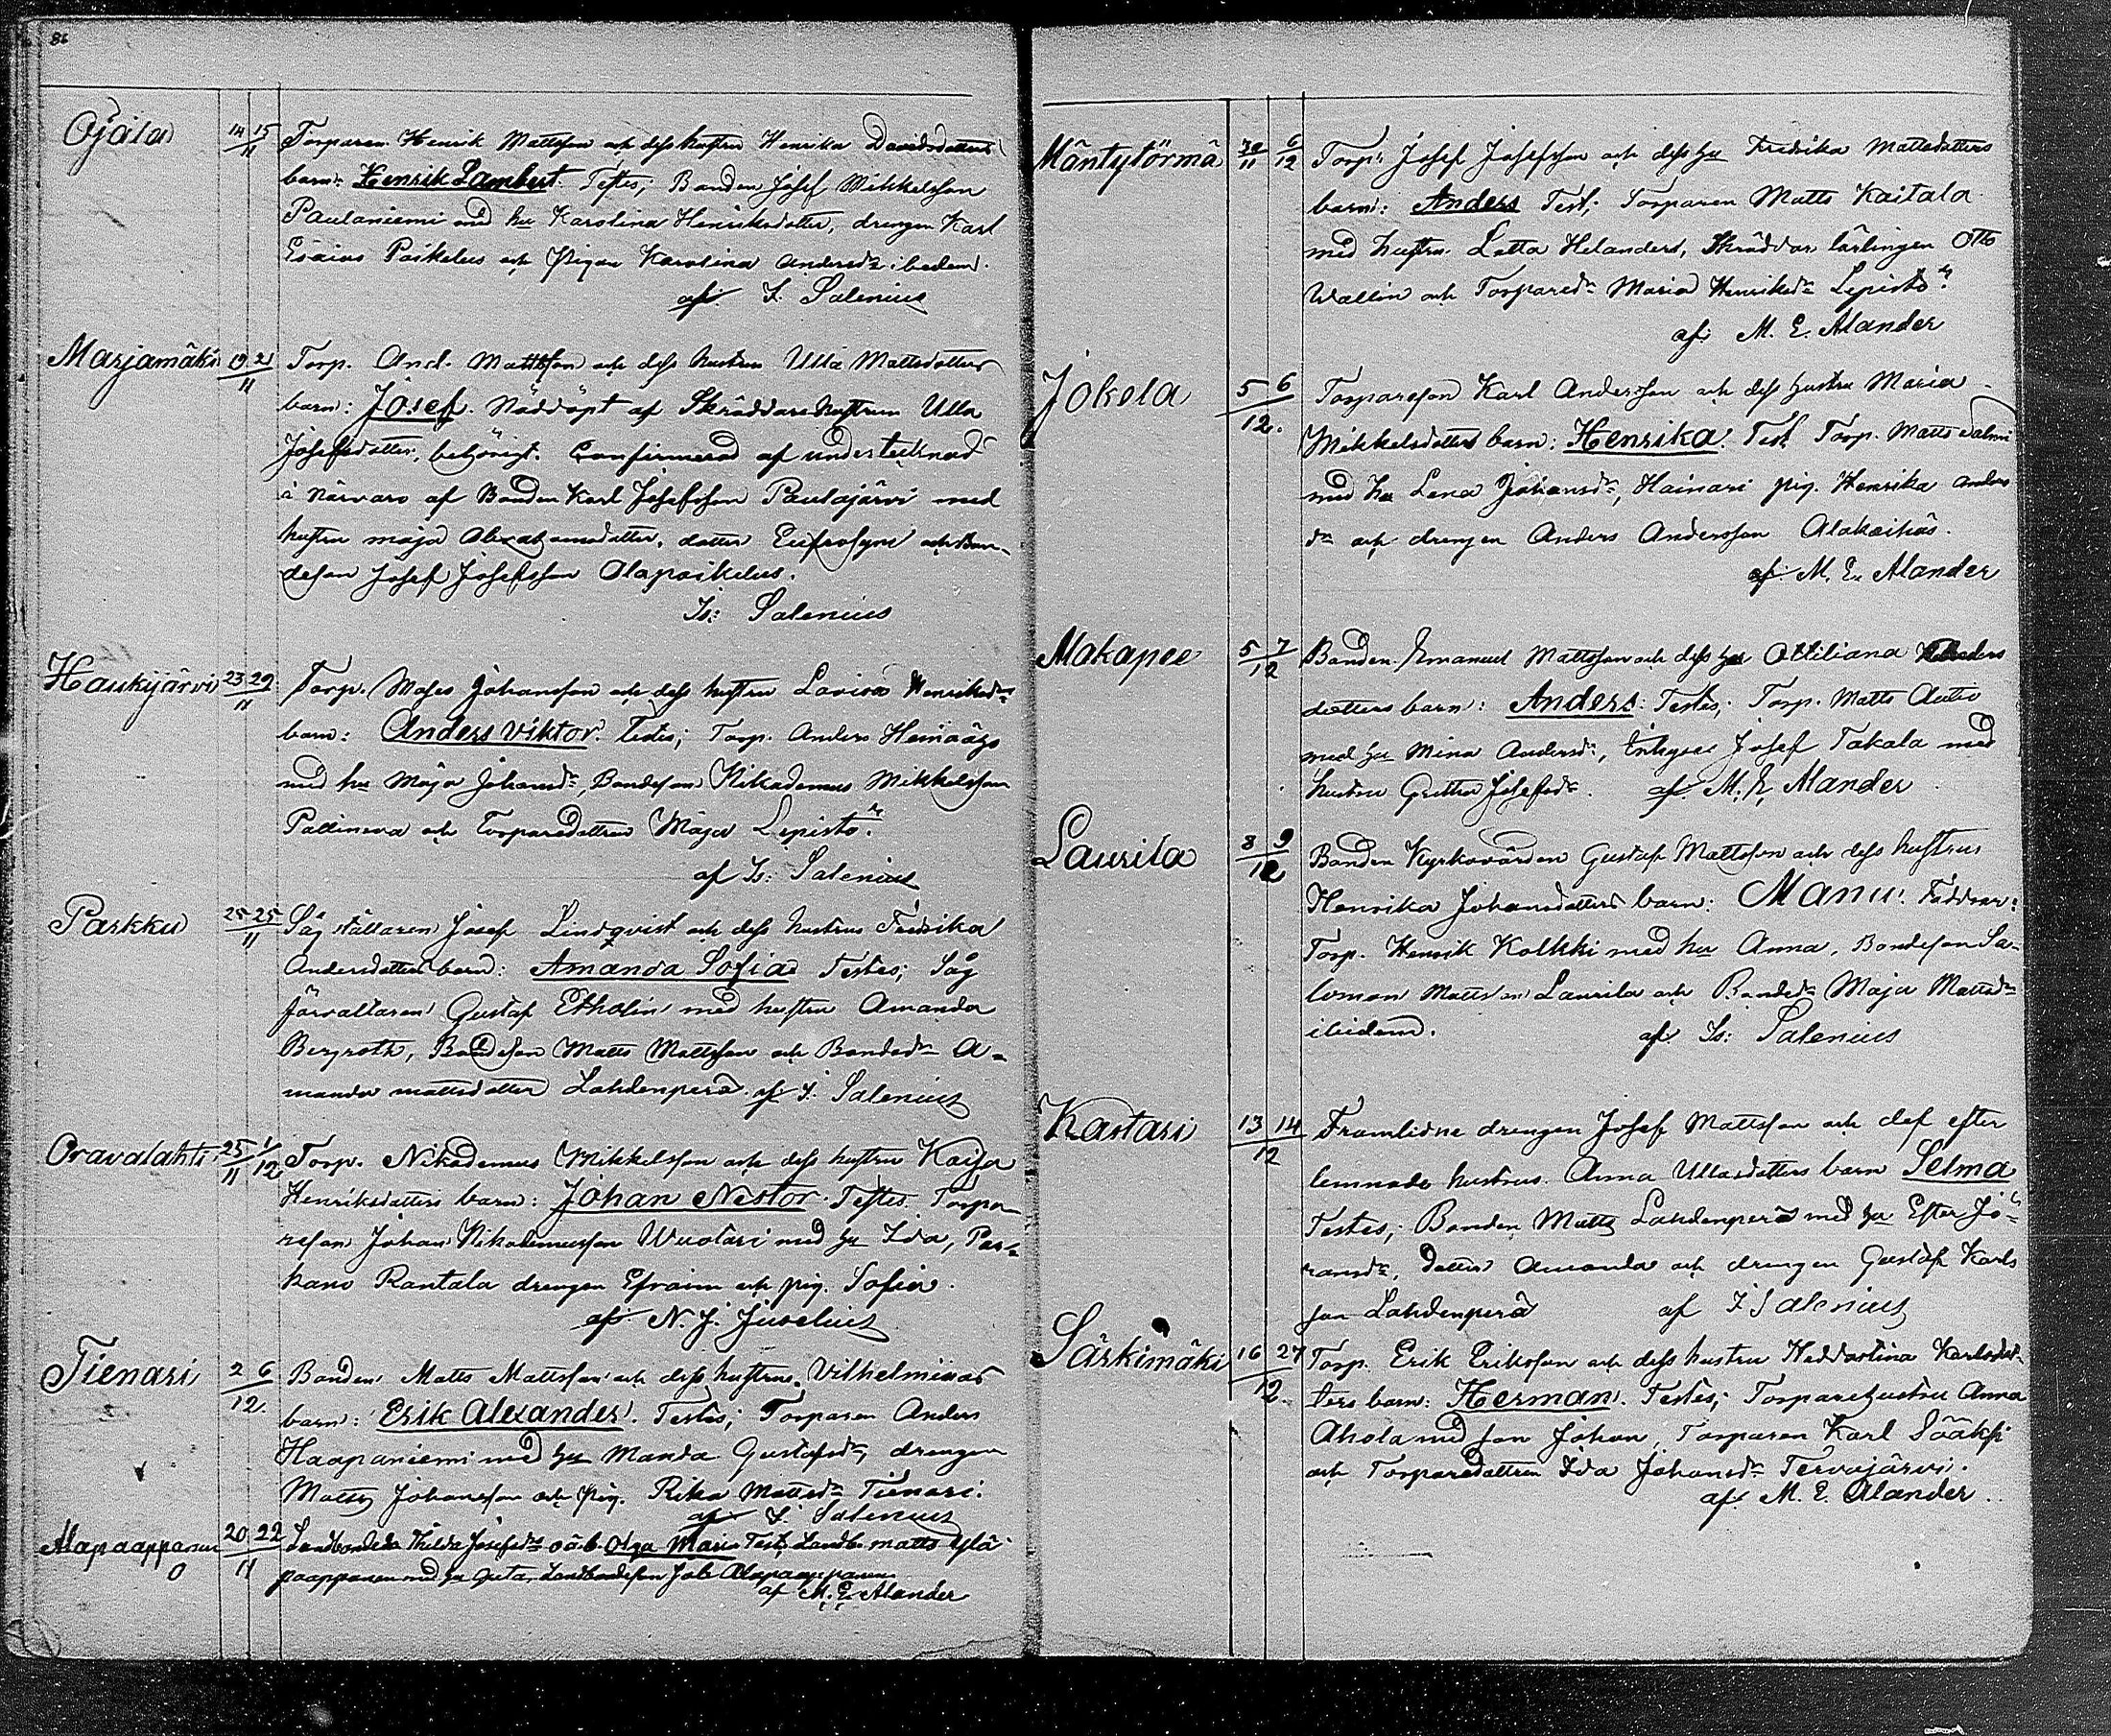 86
Ojala 14 15/11 Torparen Henrik Mattsson och dess hustru Henrika Davidsdotters
barn: Henrik Lambert. Testes; Bonden Josef Mikkelsson
Paulaniemi med hu Karolina Henriksdotter, drengen Karl
Esaias Poikelus och Pigan Karolina Andersdr ibidem.
af I. Salenius
Marjamäki 19 21/11 Torp. And. Mattsson och dess hustru Ulla Mattsdotters
barn: Josef. Näddöpt af Skräddarehustrun Ulla
Josefsdotter, behörigt. Confirmerad af undertecknad
i närvaro af Bonden Karl Josefsson Paulajärvi med
hustru Maja dotter Eufrosyne och Bon-
deson Josef Josefsson Alapoikelus.
Is: Salenius
Haukijärvi 23 29/11 Torp. Moses Johansson och dess hustru Lovisa Henriksdrs
barn: Anders Viktor. Testes; Torp. Anders Heinäaho
med hu Maja Johansdr, Bondeson Nikademus Mikkelsson
Pallineva och Torparedottren Maja Lepistö.
af Is: Salenius
Parkku 25 25/11 Sågställaren Josef Lindqvist och dess hustrus Fredrika
Andersdotters barn: Amanda Sofia. Testes; Såg
förvaltaren Gustaf Etholin med hustru Amanda
Bergroth, Bondeson Matts Mattsson och Bondedr A-
manda Mattsdotter Lahdenperä. af I. Salenius
Oravalahti 25/11 1/12 Torp. Nikodemus Mikkelsson och dess hustru Kaisa
Henriksdotters barn: Johan Nestor. Testes Torpa-
reson Johan Nikodemusson Wuolari med hu Ida, Par-
kano Rantala drengen Efraim och pig. Sofia.
af N. J. Juselius
Tienari 2 6/12. Bonden Matts Mattsson och dess hustrus Vilhelminas
barn: Erik Alexander. Testes; Torparen Anders
Haapaniemi med hu Manda Gustafsdr, drengen
Matts Johansson och pig. Rika Mattsdr Tienari.
af I. Salenius
Alapaappanen 20 22/11 Hilda Josefsdrs oä.b. Olga Maria Test; Landb. Matts Ylä-
0 paappanen med hu Greta, Landbondeson Job Alapaappanen
af M. E. Alander
Mäntytörmä 30/11 6/12 Torpn Josef Josefsson och dess hu Fredrika Mattsdotters
barn: Anders Test; Torparen Matts Kaitala
med hustru Lotta Helanders, Skräddar lärlingen Otto
Wallin och Torparedr Maria Henriksdr Lepistö.
af M. E. Alander
Jokela 5 6/12. Torpareson Karl Andersson och dess hustru Maria
Mikkelsdotters barn: Henrika. Test Torp. Matts Salmi
med hu Lena Johansdr, Hainari pig. Henrika Anders
dr och drengen Anders Andersson Alakeihäs.
af M. E. Alander
Makapee 5 7/12 Bonden Emanuel Mattsson och dess hu Ottiliana
dotters barn: Anders: Testes; Torp. Matts Autio
med hu Mina Andersdr, Inhyses Josef Takala med
hustru Gretha Josefsdr. af M. E. Alander
Laurila 8 9/12 Bonden Kyrkovärden Gustaf Mattsson och dess hustrus
Henrika Johansdotters barn: Manu. Faddrar:
Torp. Henrik Kolkki med hu Anna, Bondeson Sa-
lomon Mattsson Laurila och Bondedr Maja Mattsdr
ibidem. af Is: Salenius
Kastari 13 14/12 Framlidne drengen Josef Mattsson och dess efter
lemnade hustrus Anna Ullasdotters barn Selma
Testes; Bonden Matts Lahdenperä med hu Ester Jo-
hansdr, dotter Amanda och drengen Gustaf Karls
son Lahdenperä af I Salenius
Särkimäki 16 27/12. Torp. Erik Eriksson och dess hustru Heddastina Karlsdot-
ters barn: Herman. Testes; Torparehustru Anna
Ahola med son Johan, Torparen Karl Sääksi
och Torparedottren Ida Johansdr Tervajärvi.
af M. E. Alander